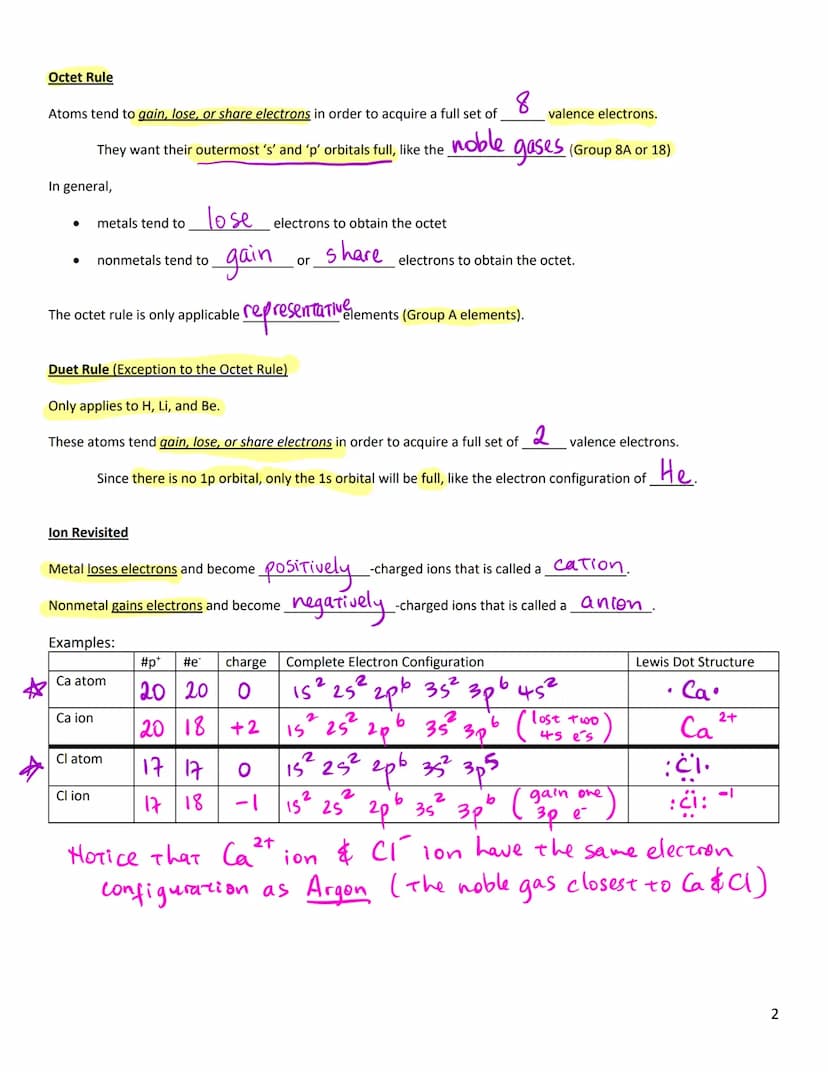 Octet Rule
Atoms tend to gain, lose, or share electrons in order to acquire a full set of 8 valence electrons.
They want their outermost ‘s’ and ‘p’ orbitals full, like the noble gases (Group 8A or 18)
In general,
• metals tend to lose electrons to obtain the octet
• nonmetals tend to gain or share electrons to obtain the octet.
The octet rule is only applicable representative elements (Group A elements).
Duet Rule (Exception to the Octet Rule)
Only applies to H, Li, and Be.
These atoms tend gain, lose, or share electrons in order to acquire a full set of 2 valence electrons.
Since there is no 1p orbital, only the 1s orbital will be full, like the electron configuration of He.
Ion Revisited
Metal loses electrons and become positively-charged ions that is called a cation.
Nonmetal gains electrons and become negatively-charged ions that is called a anion.
Examples:
#p⁺ #e⁻ charge Complete Electron Configuration Lewis Dot Structure
Ca atom 20 20 0 1s² 2s² 2p⁶ 3s² 3p⁶ 4s² · Ca ·
Ca ion 20 18 +2 1s² 2s² 2p⁶ 3s² 3p⁶ (lost two 4s e⁻s) Ca²⁺
Cl atom 17 17 0 1s² 2s² 2p⁶ 3s² 3p⁵ :Cl·
Cl ion 17 18 -1 1s² 2s² 2p⁶ 3s² 3p⁶ (gain one 3p e⁻) :Cl: ⁻¹
Notice that Ca²⁺ ion & Cl⁻ ion have the same electron
configuration as Argon (the noble gas closest to Ca & Cl)
2